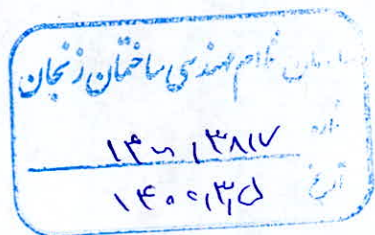 سازمان نظام مهندسی ساختمان زنجان
شماره ۱۴۰۰/۳۸۱۷
تاریخ ۱۴۰۰/۳/۵